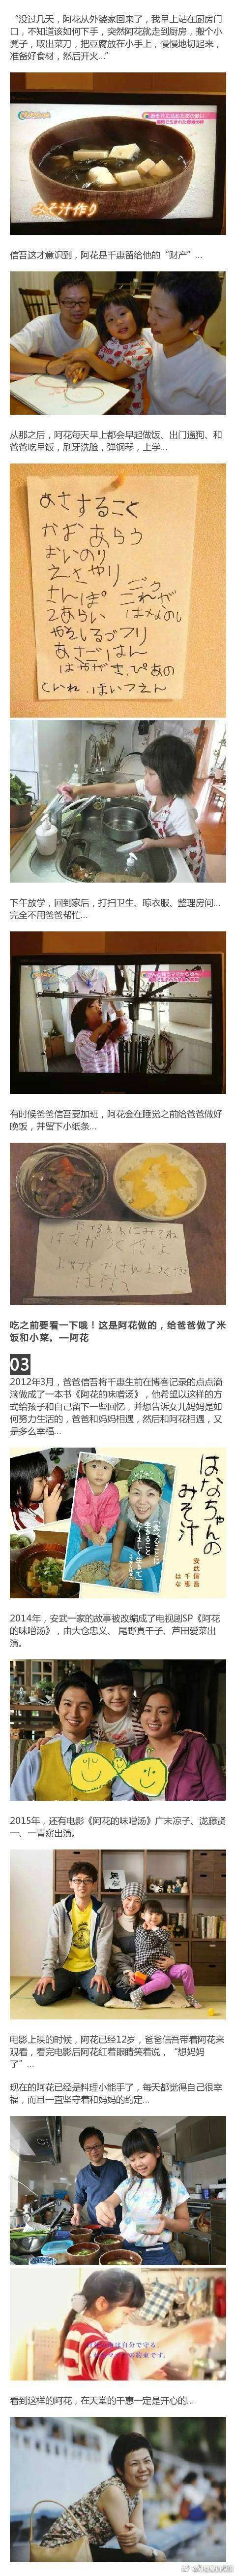 “没过几天，阿花从外婆家回来了，我早上站在厨房门
口，不知道该如何下手，突然阿花就走到厨房，搬个小
凳子，取出菜刀，把豆腐放在小手上，慢慢地切起来，
准备好食材，然后开火…”
みそ汁作り
信吾这才意识到，阿花是千惠留给他的“财产”…
从那之后，阿花每天早上都会早起做饭、出门遛狗、和
爸爸吃早饭，刷牙洗脸，弹钢琴，上学…
あさすること
かおあらう
おいのり
えさやり
さんぽ
あさごはん
下午放学，回到家后，打扫卫生、晾衣服、整理房间…
完全不用爸爸帮忙…
有时候爸爸信吾要加班，阿花会在睡觉之前给爸爸做好
晚饭，并留下小纸条…
吃之前要看一下哦！这是阿花做的，给爸爸做了米
饭和小菜。—阿花
03
2012年3月，爸爸信吾将千惠生前在博客记录的点点滴
滴做成了一本书《阿花的味噌汤》，他希望以这样的方
式给孩子和自己留下一些回忆，并想告诉女儿妈妈是如
何努力生活的，爸爸和妈妈相遇，然后和阿花相遇，又
是多么幸福…
はなちゃんの
みそ汁
安武信吾
千恵
はな
2014年，安武一家的故事被改编成了电视剧SP《阿花
的味噌汤》，由大仓忠义、 尾野真千子、芦田爱菜出
演。
2015年，还有电影《阿花的味噌汤》广末凉子、泷藤贤
一、一青窈出演。
电影上映的时候，阿花已经12岁，爸爸信吾带着阿花来
观看，看完电影后阿花红着眼睛笑着说，“想妈妈
了”…
现在的阿花已经是料理小能手了，每天都觉得自己很幸
福，而且一直坚守着和妈妈的约定…
は自分で守る。
の約束です。
看到这样的阿花，在天堂的千惠一定是开心的…